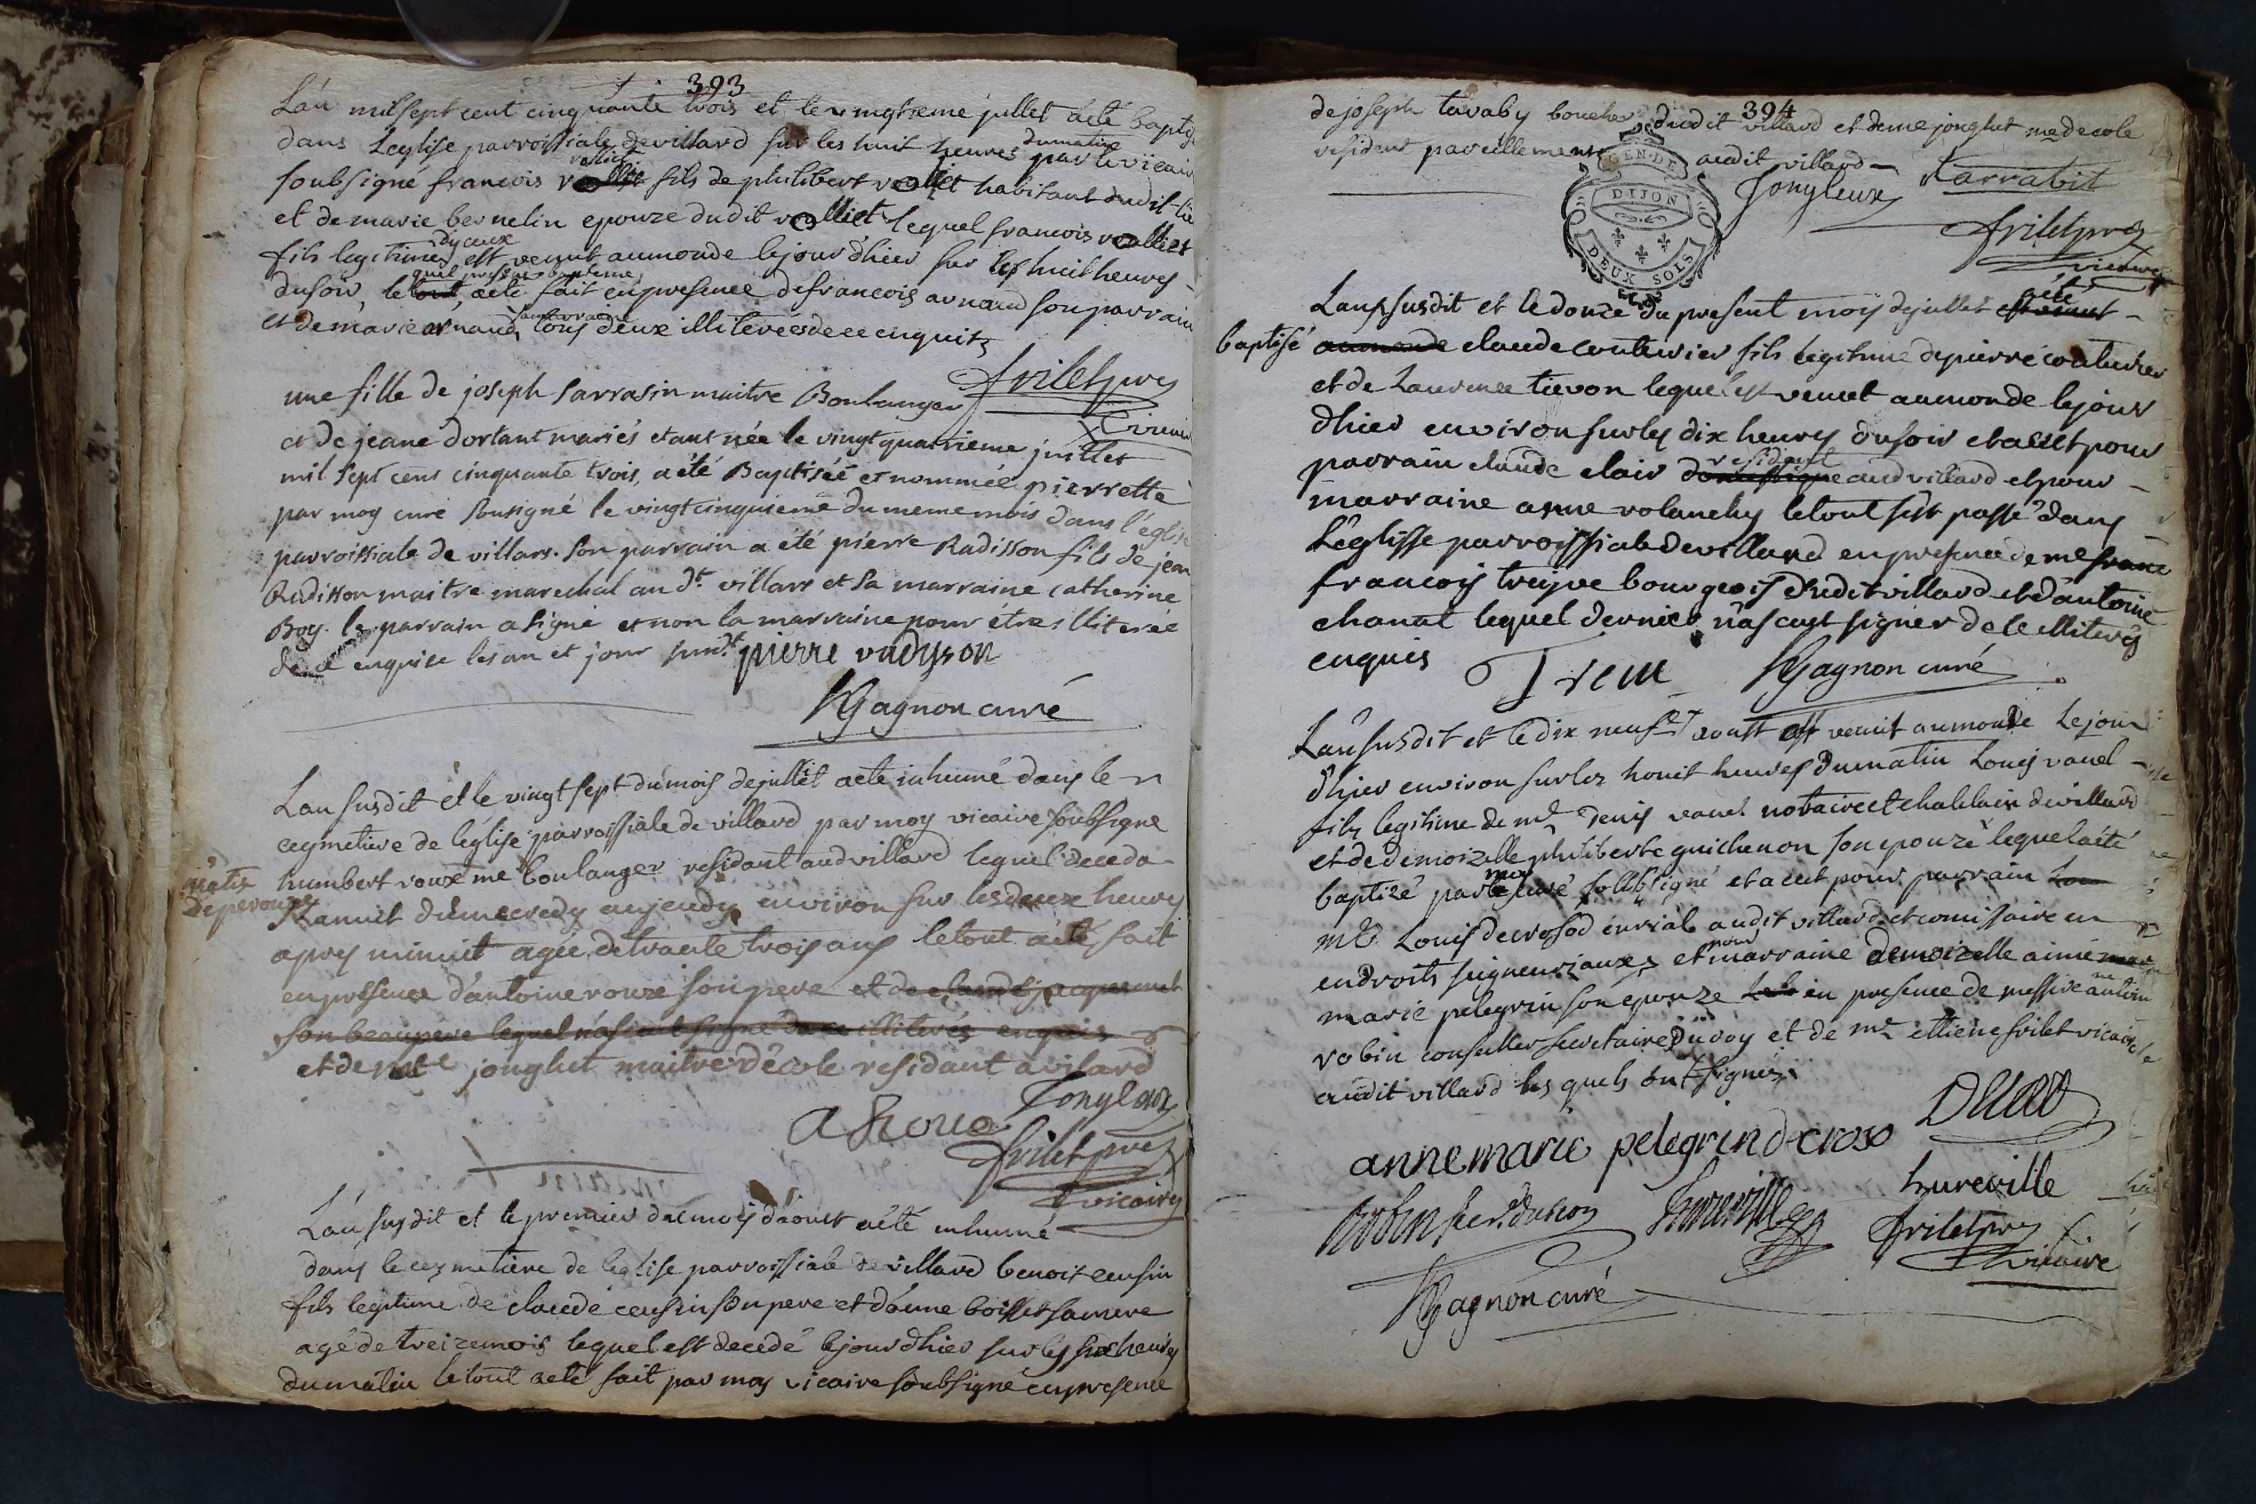 393
L'an mil sept cent cinquante trois et le vingtieme jullet a eté baptisé
dans Leglise parroissiale de villard sur les huit heures dumatin par le vicaire
soubsigné francois rolliet fils de philibert rolliet habitant dudit lieu
et de marie bernelin epouze dudit rolliet lequel francois rolliet
fils legitime dyceux est venut aumonde le jour d'hier sur les huit heures
dusoir, lequel present bapteme a eté fait en presence de francois arnaud son parrain
et de marie arnaud sa marraine tous deux illiterées de ce enquits
friletpre
vicaire
une fille de joseph sarrasin maitre Boulanger
et de jeane dortant mariés etant née le vingt quatrieme juillet
mil sept cens cinquante trois, a été Baptisée et nommée pierrette
par moy curé sousigné le vingt cinquieme du meme mois dans l'eglise
parroissiale de villars. son parrain a été pierre Radisson fils de jean
Radisson maitre marechal au dt. villars et sa marraine catherine
Boy. le parrain a signé et non la marraine pour étre illiterée
de ce enquise les an et jour susdt. pierre radyson
Gagnon curé
L'an susdit et le vingt sept du mois de jullet a eté inhumé dans le
ceymetiere de leglise parroissiale de villard par moy vicaire soubsigné
humbert roux me boulanger residant aud villard lequel deceda
natif
de perouge
La nuit dumecredy au jeudy environ sur les deux heures
apres minuit agée de trante trois ans le tout a eté fait
en presence d'antoine roux son pere et de claude
son beaupere lequel n'a signé de ce illiterés enquis
et de me jonglut maitre d'école residant a vilard
Jongleux
A Roue
friletpre
vicaire
L'an susdit et le premier du mois d'aoust a eté inhumé
dans le ceymetiere de leglise parroissiale de villard benoit cusin
fils legitime de claude cusin son pere et d'anne boisset sa mere
agé de treize mois lequel est decedé le jour d'hier sur les six heures
dumatin le tout a eté fait par moy vicaire soubsigné en presence
394
de joseph tavaby boucher dudit villard et de me jonglut me d'ecole
resident pareillement audit villard
GEN. DE
DIJON
DEUX SOLS
Jongleux
tarrabit
friletpre
vicaire
L'an susdit et le douze du present moy de jullet a eté
baptisé claude couturier fils legitime de pierre couturier
et de Laurence tievon lequel est venut aumonde le jour
dhier environ sur les dix heures du soir et a eut pour
parrain claude clair residant aud villard et pour
marraine anne volanchy le tout s'est passé dans
L'eglisse parroissiale de villard en presence de me
francois treyve bourgeois dudit villard et d'antoine
chanal lequel dernier n'a sceut signer de ce illiterés
enquis
Treiu Gagnon curé
L'an susdit et le dix neuf aoust est venut aumonde Le jour
d'hier environ sur les houit heures du matin Louis vanel
fils legitime de me denis vanel notaire et chatelain de villard
et de demoizelle philiberte guichenon son epouze lequel a été
baptizé par moy curé soussigné et a eut pour parrain
me Louis decrosod curial audit villard et comissaire en
en droits seigneuriaux et pour marraine demoizelle anne
marie pelegrin son épouze en presence de messire antoine
robin conseiller secretaire du roy et de me ettiene frilet vicaire
audit villard les quels ont signés
annemarie pelegrin decroso
robin secr. du Roy
hureville
friletpre
vicaire
Gagnon curé